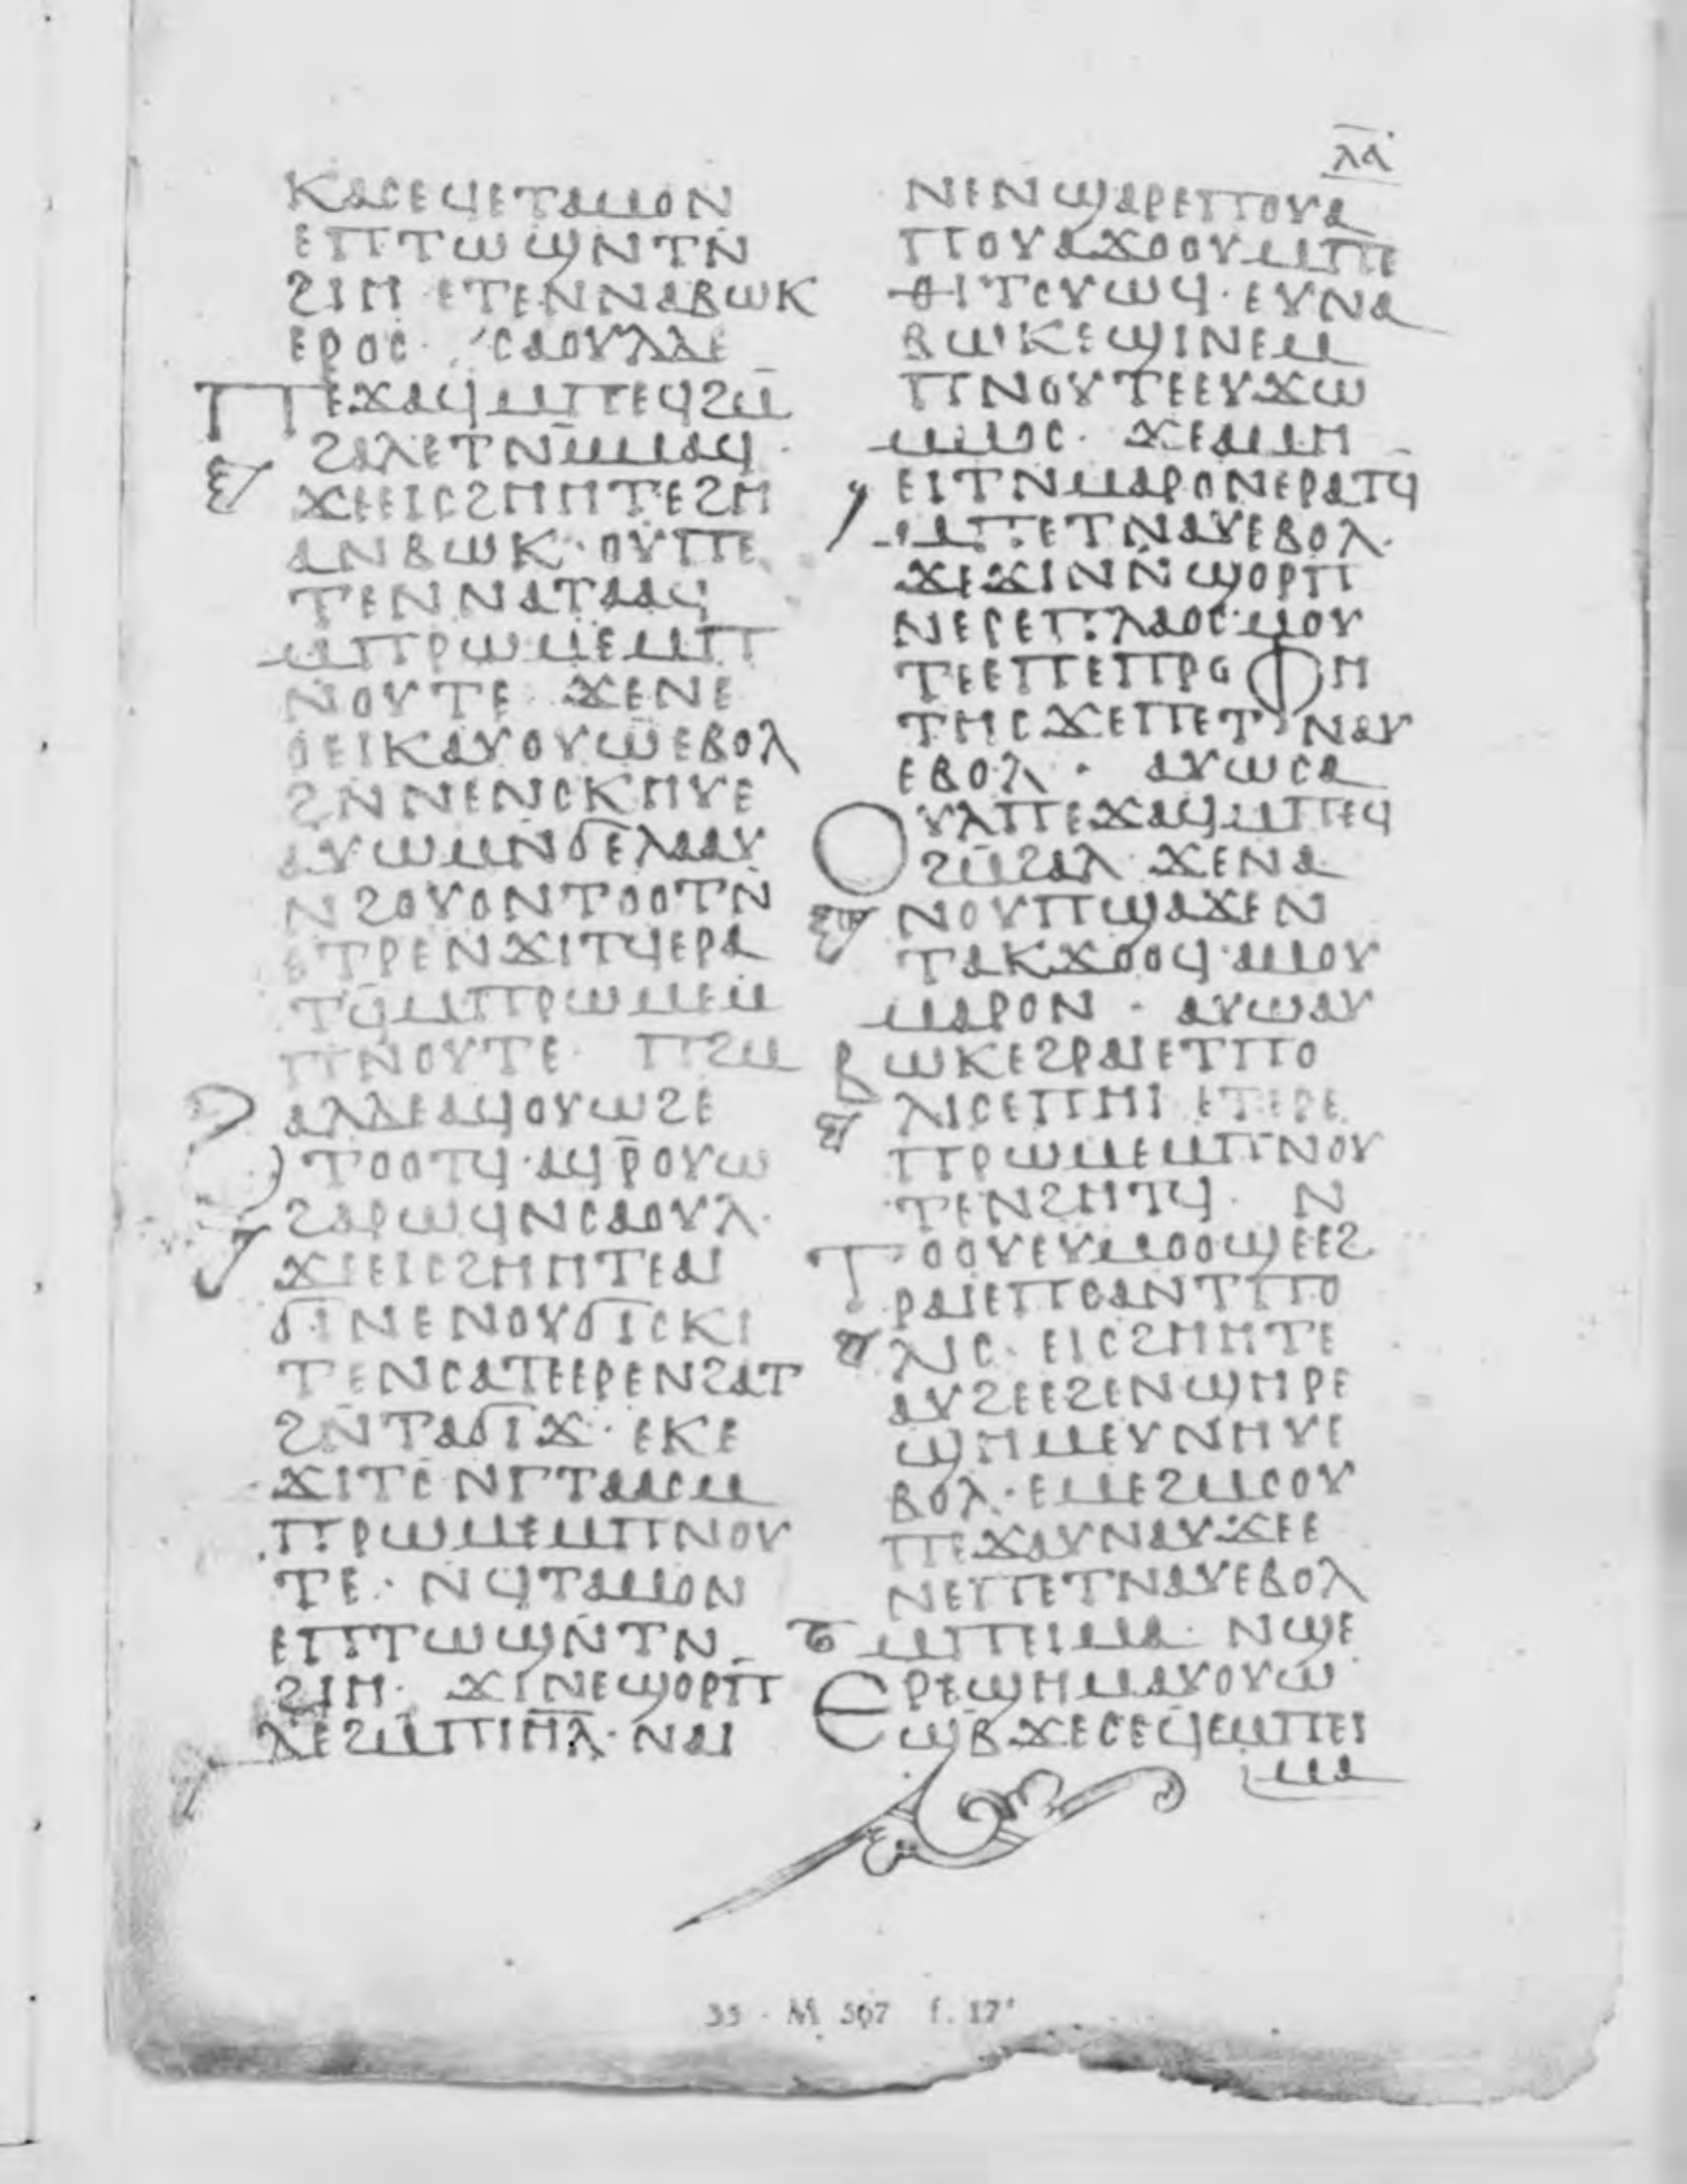 ⲗⲁ
ⲕⲁⲥⲉϥⲉⲧⲁⲙⲟⲛ
ⲉⲡⲧⲱϣⲛⲧⲛ
ϩⲓⲏ ⲉⲧⲉⲛⲛⲁⲃⲱⲕ
ⲉⲣⲟⲥ· ⲥⲁⲟⲩⲗⲇⲉ
ⲡⲉϫⲁϥⲙⲡⲉϥϩⲙ̄
ϩⲁⲗⲉⲧⲛⲙ̄ⲙⲁϥ·
ϫⲉⲉⲓⲥϩⲏⲏⲧⲉϩⲏ
ⲁⲛⲃⲱⲕ· ⲟⲩⲡⲉ
ⲧⲉⲛⲛⲁⲧⲁⲁϥ
ⲙⲡⲣⲱⲙⲉⲙⲡ
ⲛⲟⲩⲧⲉ· ϫⲉⲛⲉ
ⲟⲉⲓⲕⲁⲩⲟⲩⲱⲉⲃⲟⲗ
ϩⲛ̄ⲛⲉⲛⲥⲕⲏⲩⲉ
ⲁⲩⲱⲙⲛ̄ϭⲉⲗⲁⲁⲩ
ⲛϩⲟⲩⲟⲛⲧⲟⲟⲧⲛ̄
ⲉⲧⲣⲉⲛϫⲓⲧϥⲉⲣⲁ
ⲧϥ̄ⲙⲡⲣⲱⲙⲉⲙ̄
ⲡⲛⲟⲩⲧⲉ· ⲡϩⲙ
ϩⲁⲗⲇⲉⲁϥⲟⲩⲱϩⲉ
ⲧⲟⲟⲧϥ·ⲁϥⲣ̄ⲟⲩⲱ
ϩⲁⲣⲱϥⲛⲥⲁⲟⲩⲗ·
ϫⲉⲉⲓⲥϩⲏⲏⲧⲉⲁⲓ
ϭⲓⲛⲉⲛⲟⲩϭⲓⲥⲕⲓ
ⲧⲉⲛⲥⲁⲧⲉⲉⲣⲉⲛϩⲁⲧ
ϩⲛ̄ⲧⲁϭⲓϫ· ⲉⲕⲉ
ϫⲓⲧⲥⲛⲅⲧⲁⲁⲥⲙ
ⲡⲣⲱⲙⲉⲙⲡⲛⲟⲩ
ⲧⲉ· ⲛϥⲧⲁⲙⲟⲛ
ⲉⲡⲧⲱϣⲛ̄ⲧⲛ
ϩⲓⲏ· ϫⲓⲛⲉϣⲟⲣⲡ̄
ⲇⲉϩⲙ̄ⲡⲓⲏ̄ⲗ̄·ⲛⲁⲓ
ⲛⲉⲛϣⲁⲣⲉⲡⲟⲩⲁ
ⲡⲟⲩⲁϫⲟⲟⲩⲙⲡⲉ
ⲑⲓⲧⲟⲩⲱϥ· ⲉⲩⲛⲁ
ⲃⲱⲕⲉϣⲓⲛⲉⲙ
ⲡⲛⲟⲩⲧⲉⲉⲩϫⲱ
ⲙⲙⲟⲥ· ϫⲉⲁⲙⲏ
ⲉⲓⲧⲛⲙⲁⲣⲟⲛⲉⲣⲁⲧϥ
ⲙⲡⲉⲧⲛⲁⲩⲉⲃⲟⲗ·
ϫⲉϫⲓⲛⲛ̄ϣⲟⲣⲡ
ⲛⲉⲣⲉⲡⲗⲁⲟⲥⲙⲟⲩ
ⲧⲉⲉⲡⲉⲡⲣⲟⲫⲏ
ⲧⲏⲥϫⲉⲡⲉⲧⲛⲁⲩ
ⲉⲃⲟⲗ· ⲁⲩⲱⲥⲁ
ⲟⲩⲗⲡⲉϫⲁϥⲙⲡⲉϥ
ϩⲙ̄ϩⲁⲗ ϫⲉⲛⲁ
ⲛⲟⲩⲡϣⲁϫⲉⲛ
ⲧⲁⲕϫⲟⲟϥ·ⲁⲙⲟⲩ
ⲙⲁⲣⲟⲛ· ⲁⲩⲱⲁⲩ
ⲃⲱⲕⲉϩⲣⲁⲓⲉⲧⲡⲟ
ⲗⲓⲥⲉⲡⲙⲓ ⲉⲧⲉⲣⲉ
ⲡⲣⲱⲙⲉⲙⲡⲛⲟⲩ
ⲧⲉⲛϩⲏⲧϥ· ⲛ
ⲧⲟⲟⲩⲉⲩⲙⲟⲟϣⲉⲉϩ
ⲣⲁⲓⲉⲡⲥⲁⲛⲧⲡⲟ
ⲗⲓⲥ· ⲉⲓⲥϩⲏⲏⲧⲉ
ⲁⲩϩⲉⲉϩⲉⲛϣⲏⲣⲉ
ϣⲏⲙⲉⲩⲛⲏⲩⲉ
ⲃⲟⲗ·ⲉⲙⲉϩⲙⲟⲟⲩ
ⲡⲉϫⲁⲩⲛⲁⲩϫⲉⲉ
ⲛⲉⲩⲡⲉⲧⲛⲁⲩⲉⲃⲟⲗ
ⲙⲡⲉⲓⲙⲁ· ⲛϣⲉ
ⲉⲣⲉϣⲏⲙⲁⲩⲟⲩⲱ
ϣⲃ·ϫⲉⲥⲉϥⲉⲙⲡⲉⲓ
ⲙⲁ
33 · M 567 f. 17ʳ